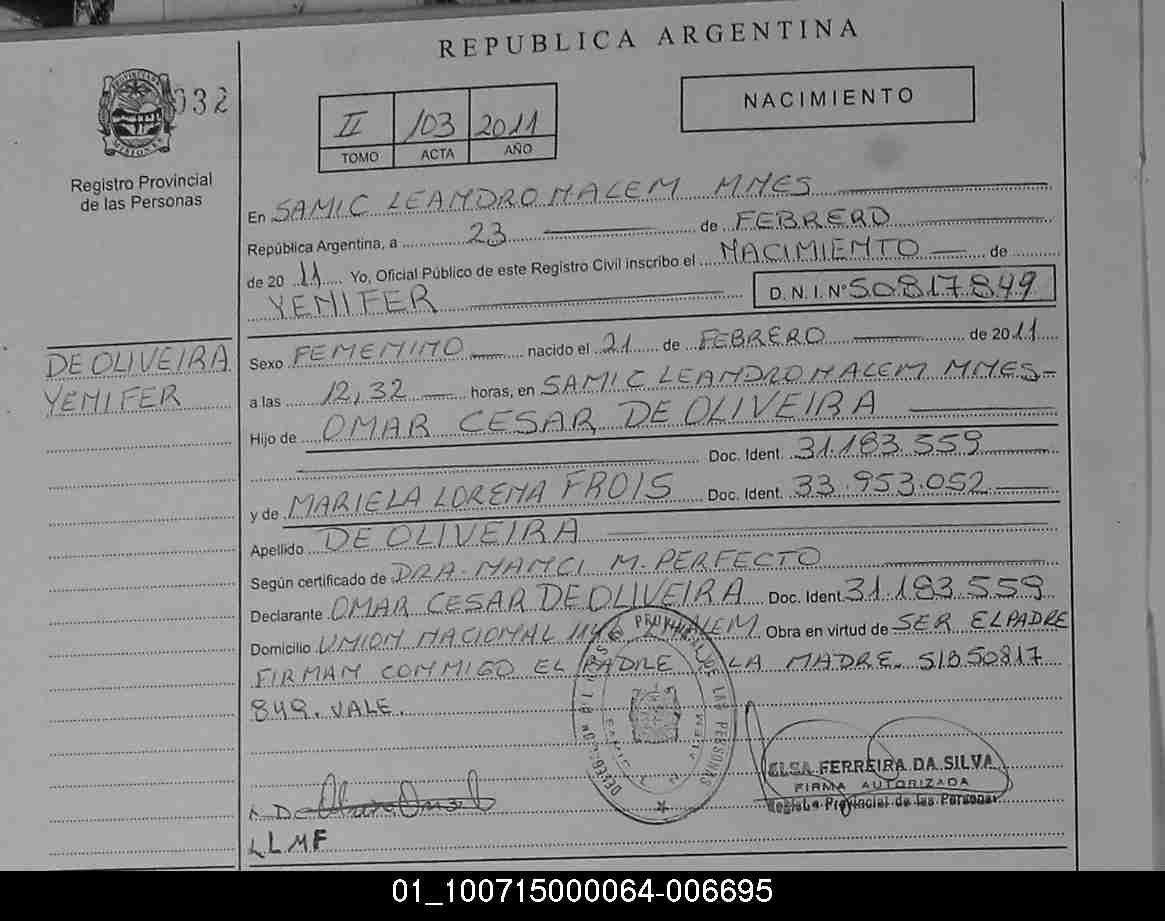 REPUBLICA ARGENTINA
032
PROVINCIA DE MISIONES
Registro Provincial
de las Personas
II 103 2011
TOMO ACTA AÑO
NACIMIENTO
En SAMIC LEANDRO N ALEM MNES
República Argentina, a 23 de FEBRERO
de 2011 Yo, Oficial Público de este Registro Civil inscribo el NACIMIENTO de
YENIFER D.N.I. Nº 50817849
DE OLIVEIRA
YENIFER
Sexo FEMENINO nacido el 21 de FEBRERO de 2011
a las 12,32 horas, en SAMIC LEANDRO N ALEM MNES-
Hijo de OMAR CESAR DE OLIVEIRA
Doc. Ident. 31.183.559
y de MARIELA LORENA FROIS Doc. Ident. 33.953.052
Apellido DE OLIVEIRA
Según certificado de DRA. NANCI M. PERFECTO
Declarante OMAR CESAR DE OLIVEIRA Doc. Ident 31.183.559
Domicilio UNION NACIONAL 1146 L N ALEM Obra en virtud de SER EL PADRE
FIRMAN CONMIGO EL PADRE Y LA MADRE. S/B 50817
849. VALE.
ELSA FERREIRA DA SILVA
FIRMA AUTORIZADA
Registro Provincial de las Personas
LLMF
01_100715000064-006695